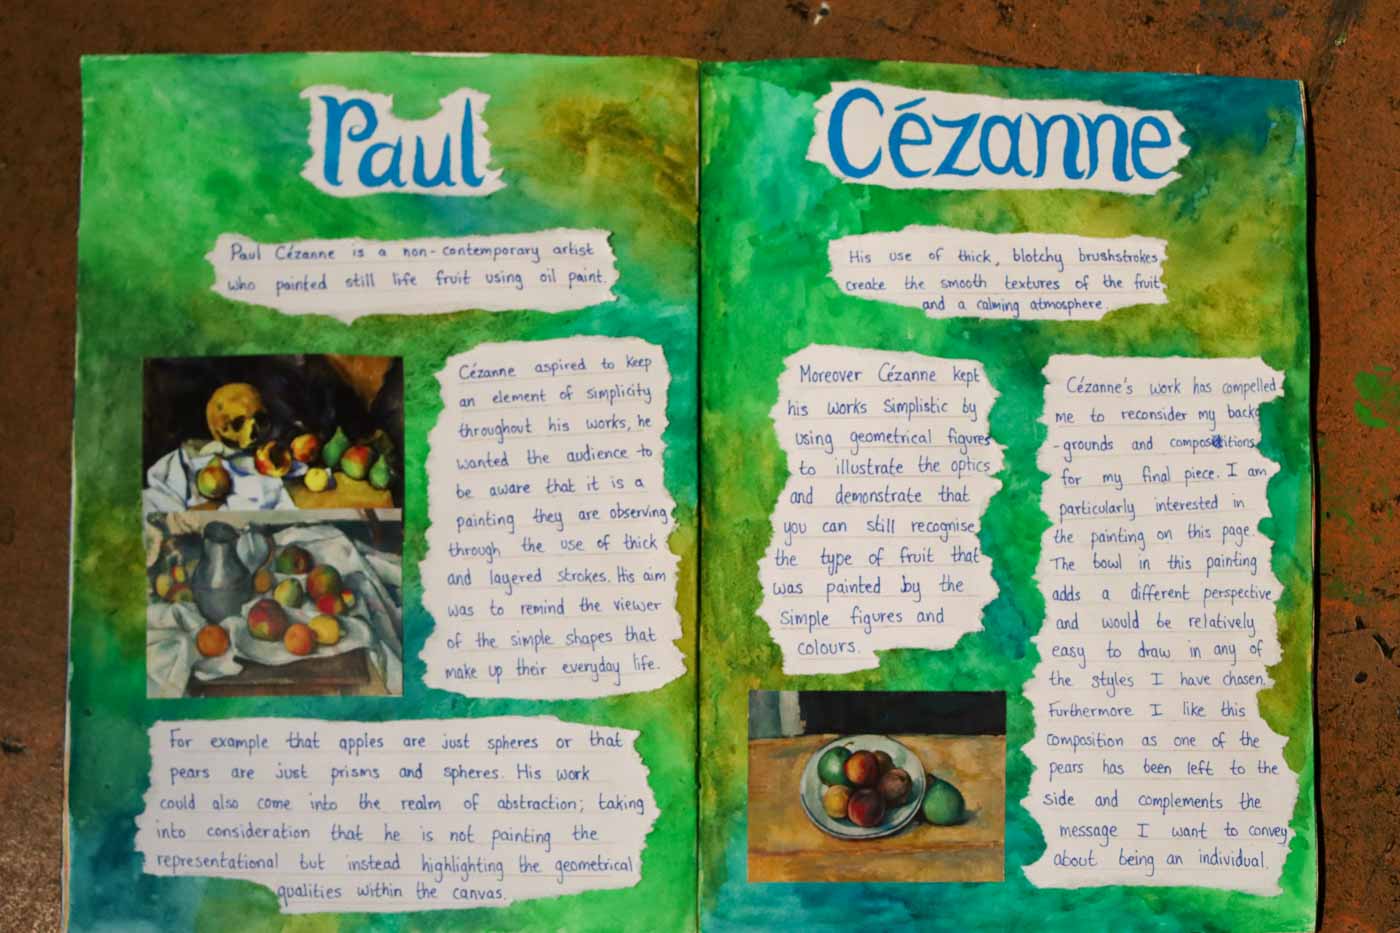 Paul
Paul Cézanne is a non-contemporary artist
who painted still life fruit using oil paint.
Cézanne aspired to keep
an element of simplicity
throughout his works, he
wanted the audience to
be aware that it is a
painting they are observing
through the use of thick
and layered strokes. His aim
was to remind the viewer
of the simple shapes that
make up their everyday life.
For example that apples are just spheres or that
pears are just prisms and spheres. His work
could also come into the realm of abstraction; taking
into consideration that he is not painting the
representational but instead highlighting the geometrical
qualities within the canvas.
Cézanne
His use of thick, blotchy brushstrokes
create the smooth textures of the fruit
and a calming atmosphere.
Moreover Cézanne kept
his works simplistic by
using geometrical figures
to illustrate the optics
and demonstrate that
you can still recognise
the type of fruit that
was painted by the
simple figures and
colours.
Cézanne's work has compelled
me to reconsider my back
-grounds and compositions
for my final piece. I am
particularly interested in
the painting on this page.
The bowl in this painting
adds a different perspective
and would be relatively
easy to draw in any of
the styles I have chosen.
Furthermore I like this
composition as one of the
pears has been left to the
side and complements the
message I want to convey
about being an individual.